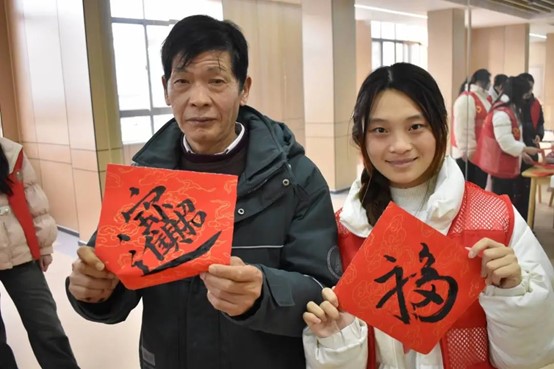 招财进宝
福